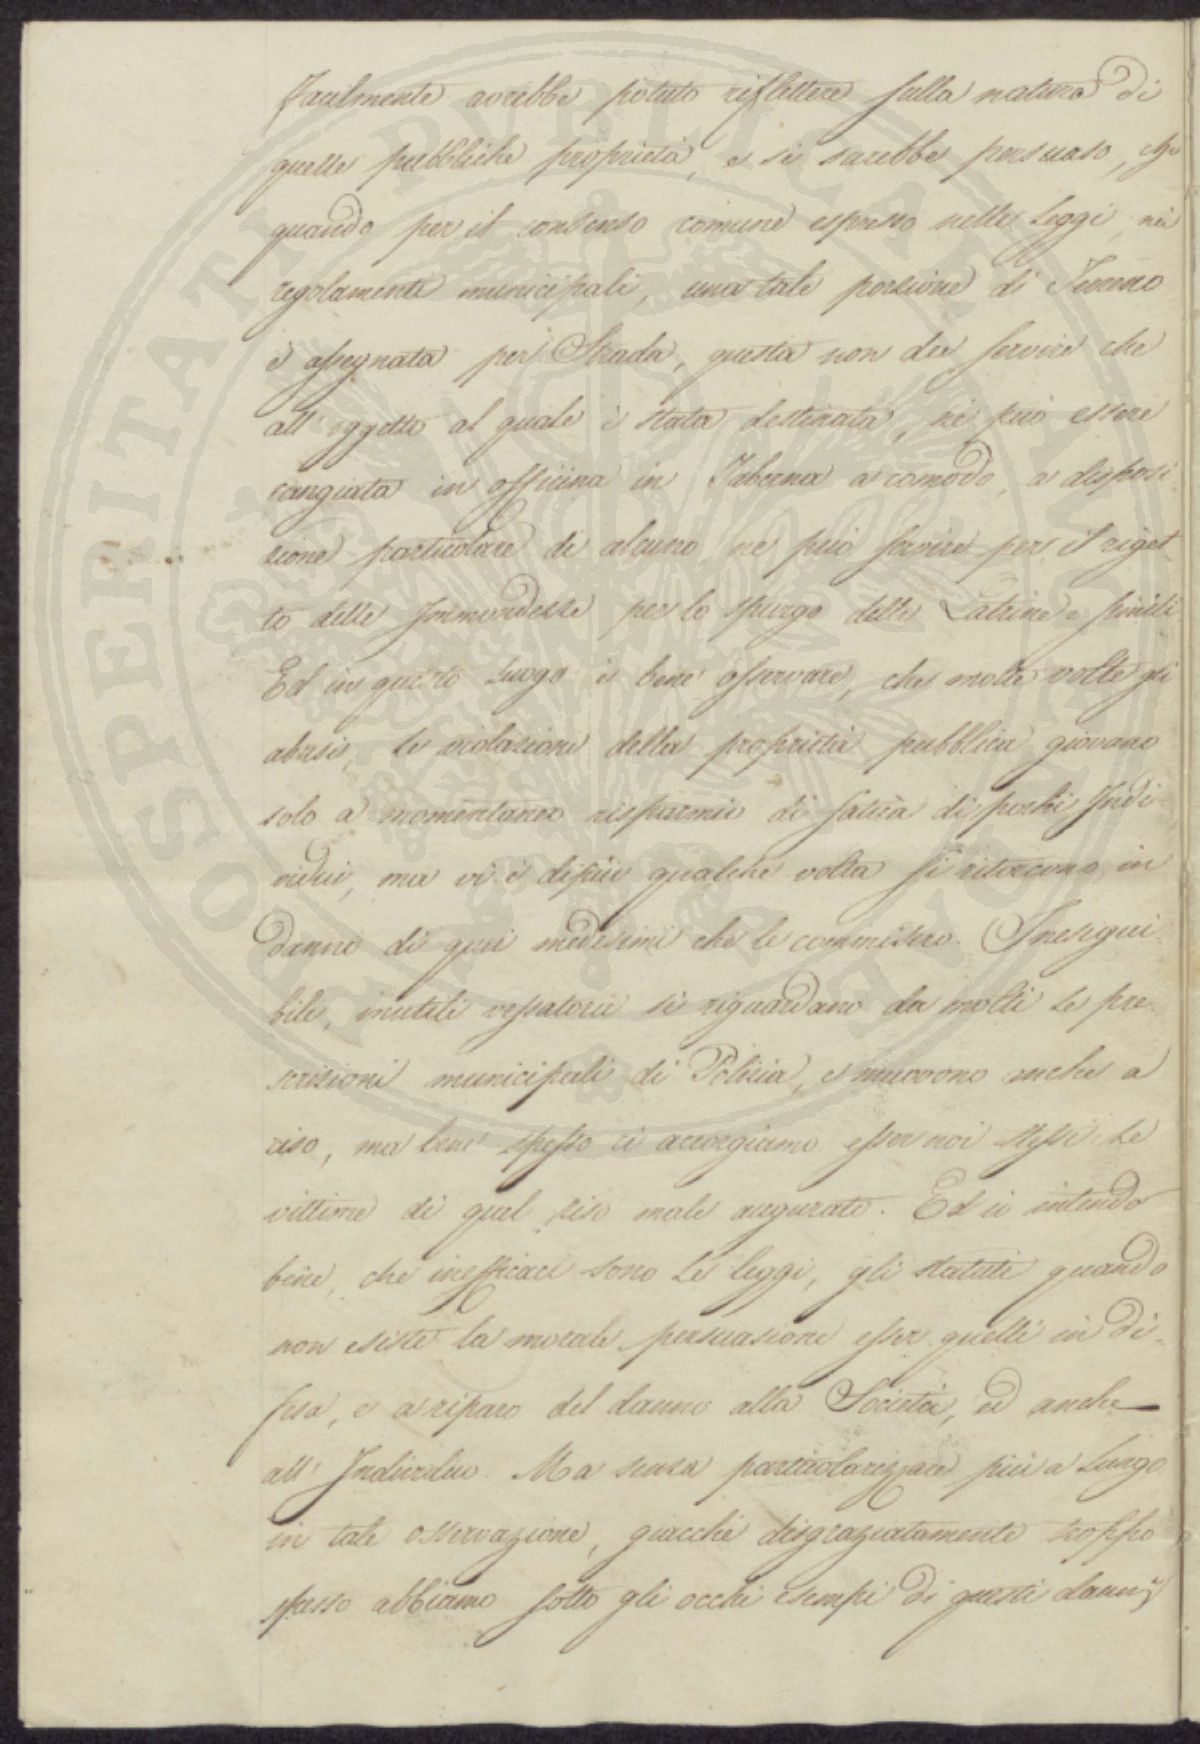 facilmente avrebbe potuto riflettere sulla natura di
quelle pubbliche proprietà, e si sarebbe persuaso, che
quando per il consenso comune espresso nelle Leggi, nei
regolamenti municipali, una tale porzione di Terreno
è assegnata per Strada, questa non dee servire che
all'oggetto al quale è stata destinata, nè può essere
cangiata in officina in Taberna a comodo, a disposi
zione particolare di alcuno, nè può servire per il riget
to delle Immondezze per lo spurgo delle Latrine e simili
Ed in questo Luogo è bene osservare, che molte volte gli
abusi, le violazioni della proprietà pubblica giovano
solo a momentaneo risparmio di fatica di pochi Indi-
vidui, ma vi è dippiù qualche volta si ritorcono in
danno di quei medesimi che le commisero. Inesegui-
bili, inutili vessatorie si riguardano da molti le pre-
scrizioni municipali di Polizia, e muovono anche a
riso, ma bene spesso ci accorgiamo esser noi stessi le
vittime di quel riso male augurato. Ed io intendo
bene, che inefficaci sono le leggi, gli statuti quando
non esiste la morale persuasione esser quelli in di-
fesa, e a riparo del danno alla Società, ed anche
all'Individuo. Ma senza particolarizzare più a Lungo
in tale osservazione, giacchè disgraziatamente troppo
spesso abbiamo sotto gli occhi esempi di questi danni
PROSPERITATI PUBLICAE